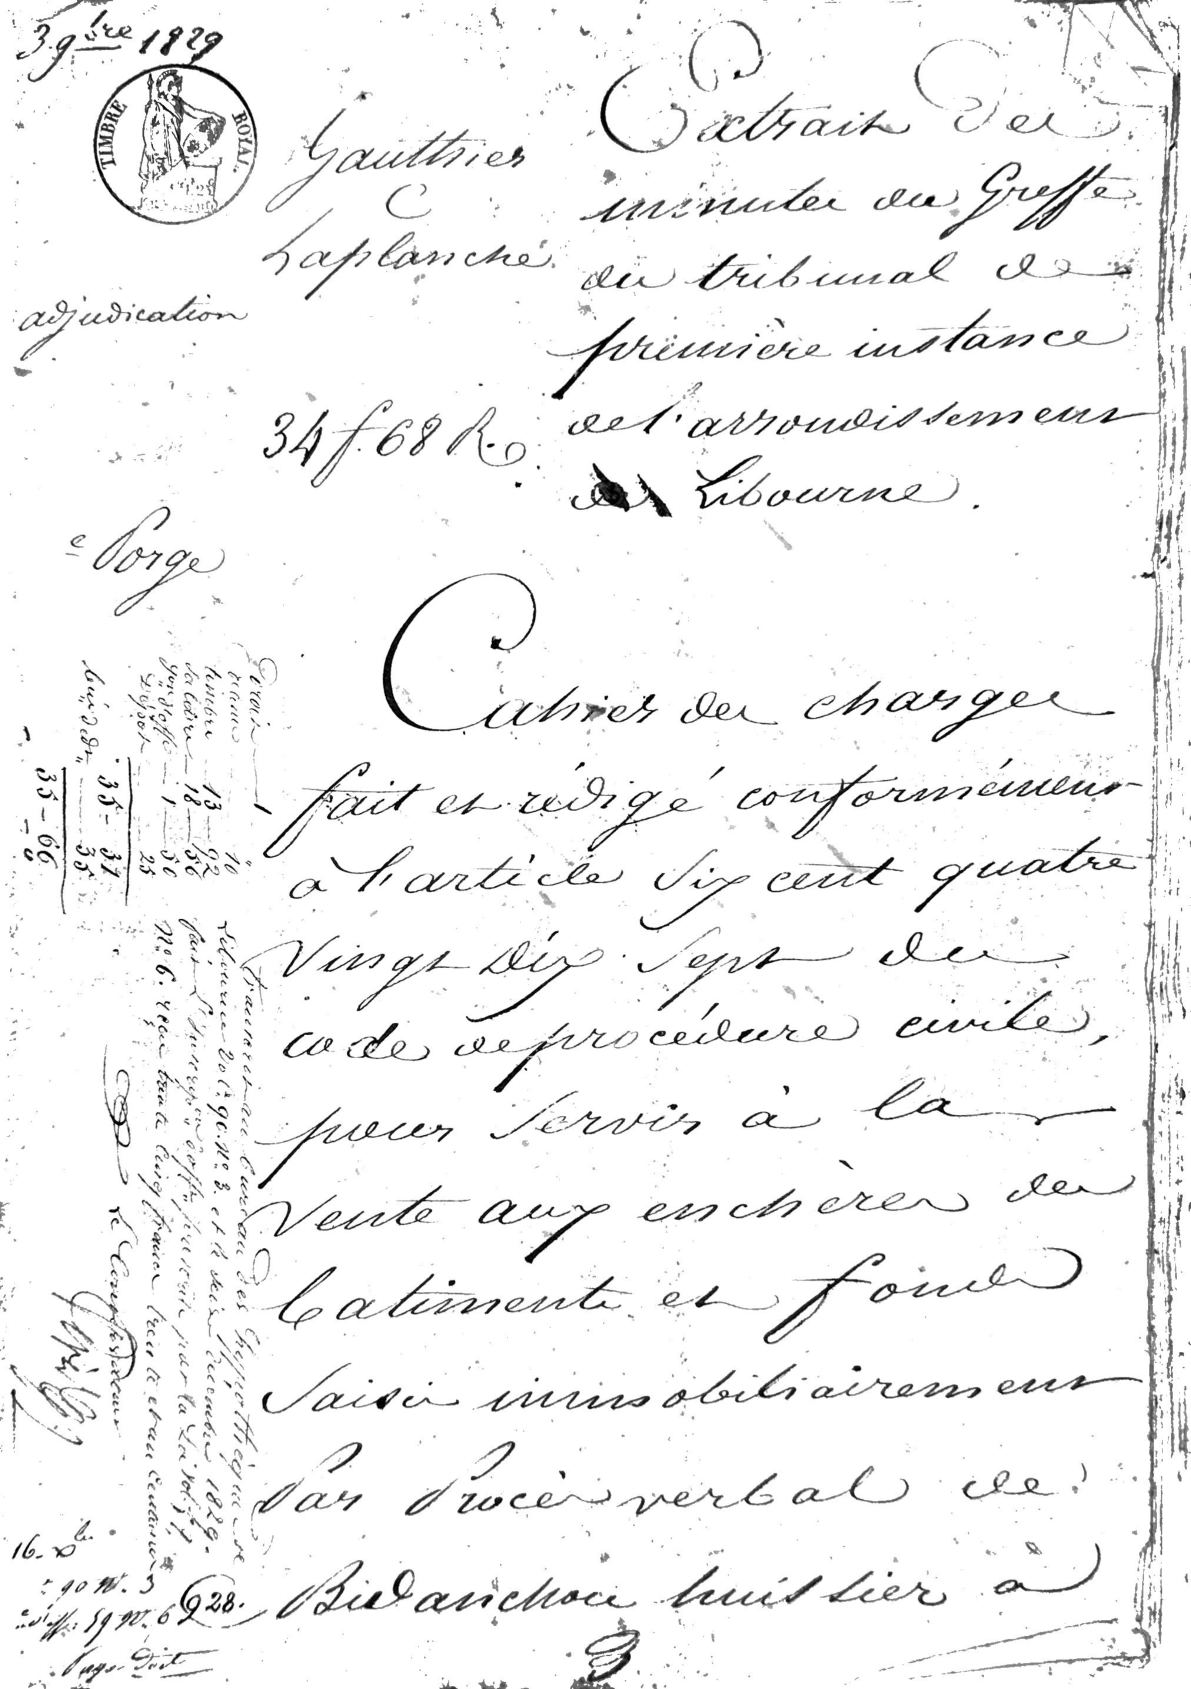 3 9bre 1829
TIMBRE ROYAL
Gauthier
C
Laplanche
adjudication
34 f. 68 R.
e Porge
Extrait des
minutes du Greffe
du tribunal de
première instance
de l'arrondissement
de Libourne.
Cahier des charges
fait et rédigé conformément
à l'article Six cent quatre
Vingt Dix Sept du
code de procédure civile,
pour Servir à la
Vente aux enchères des
batiments et fonds
Saisis immobiliairement
Par Procès verbal de
Bidanchou huissier à
3
timbre 13 - 92
Salaire 18 - 50
1 - 50
Dépôt 25
35 - 37
35
35 - 66
Transcrit au bureau des hypothèques de
Libourne vol. 90. N° 3. et le seize décembre 1829.
N° 6. reçu trente cinq francs trente et un centimes
Le Conservateur
16 - Xbre
90 N. 3
59 N. 6
928.